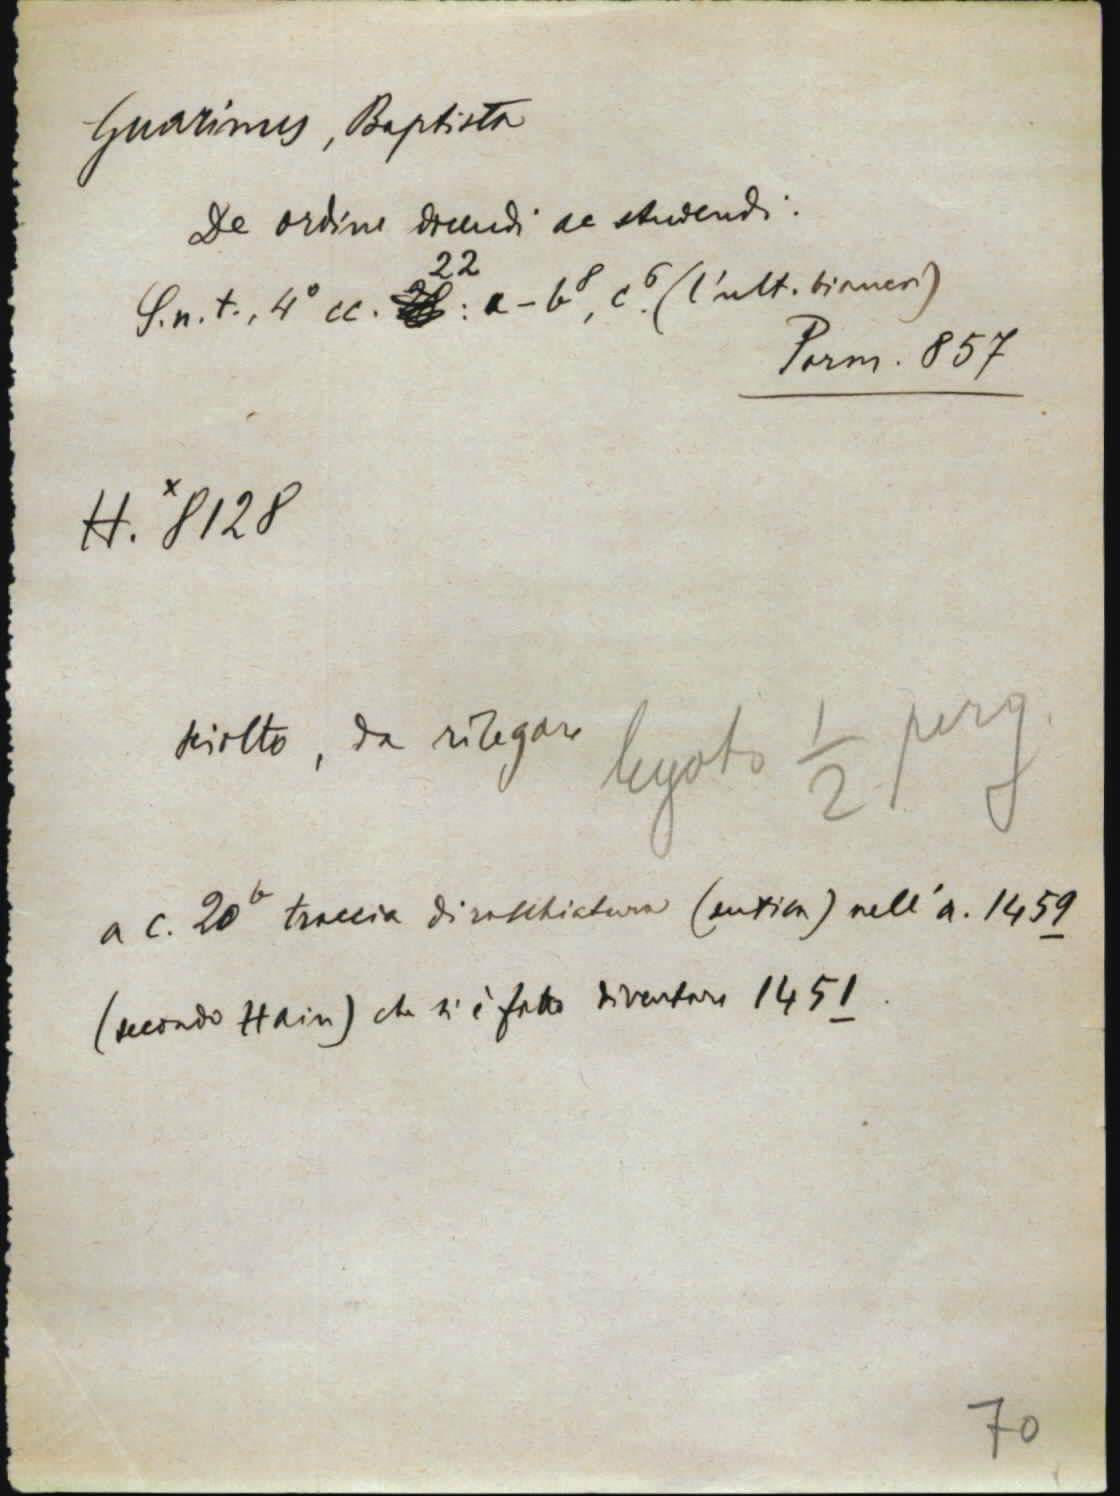 Guarinus, Baptista
De ordine docendi ac studendi.
S.n.t., 4° cc. 22: a-b⁸, c⁶. (l'ult. bianca)
Parm. 857
H. ˣ8128
sciolto, da rilegare legato ½ perg.
a c. 20ᵇ traccia di raschiatura (antica) nell'a. 1459
(secondo Hain) che si è fatto diventare 1451.
70